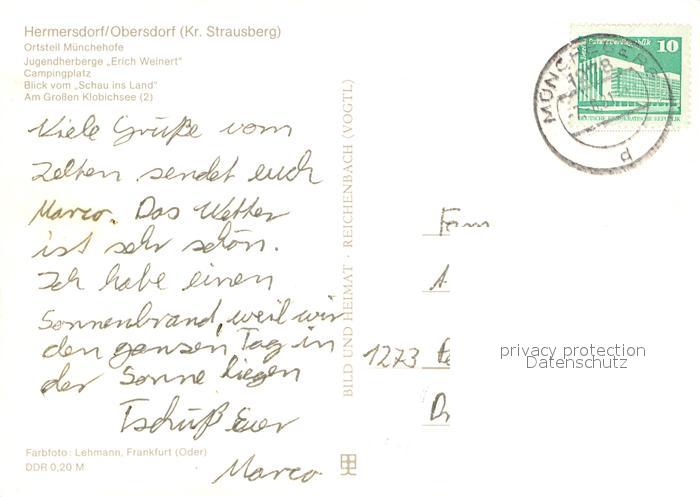 Hermersdorf/Obersdorf (Kr. Strausberg)
Ortsteil Münchehofe
Jugendherberge „Erich Weinert"
Campingplatz
Blick vom „Schau ins Land"
Am Großen Klobichsee (2)
Viele Grüße vom
Zelten sendet euch
Marco. Das Wetter
ist sehr schön.
Ich habe einen
Sonnenbrand, weil wir
den ganzen Tag in
der Sonne liegen
Tschüß Euer
Marco
Farbfoto: Lehmann, Frankfurt (Oder)
DDR 0,20 M
BILD UND HEIMAT · REICHENBACH (VOGTL)
10
DEUTSCHE DEMOKRATISCHE REPUBLIK
MÜNCHEBERG
1278
Fam
1273
privacy protection
Datenschutz